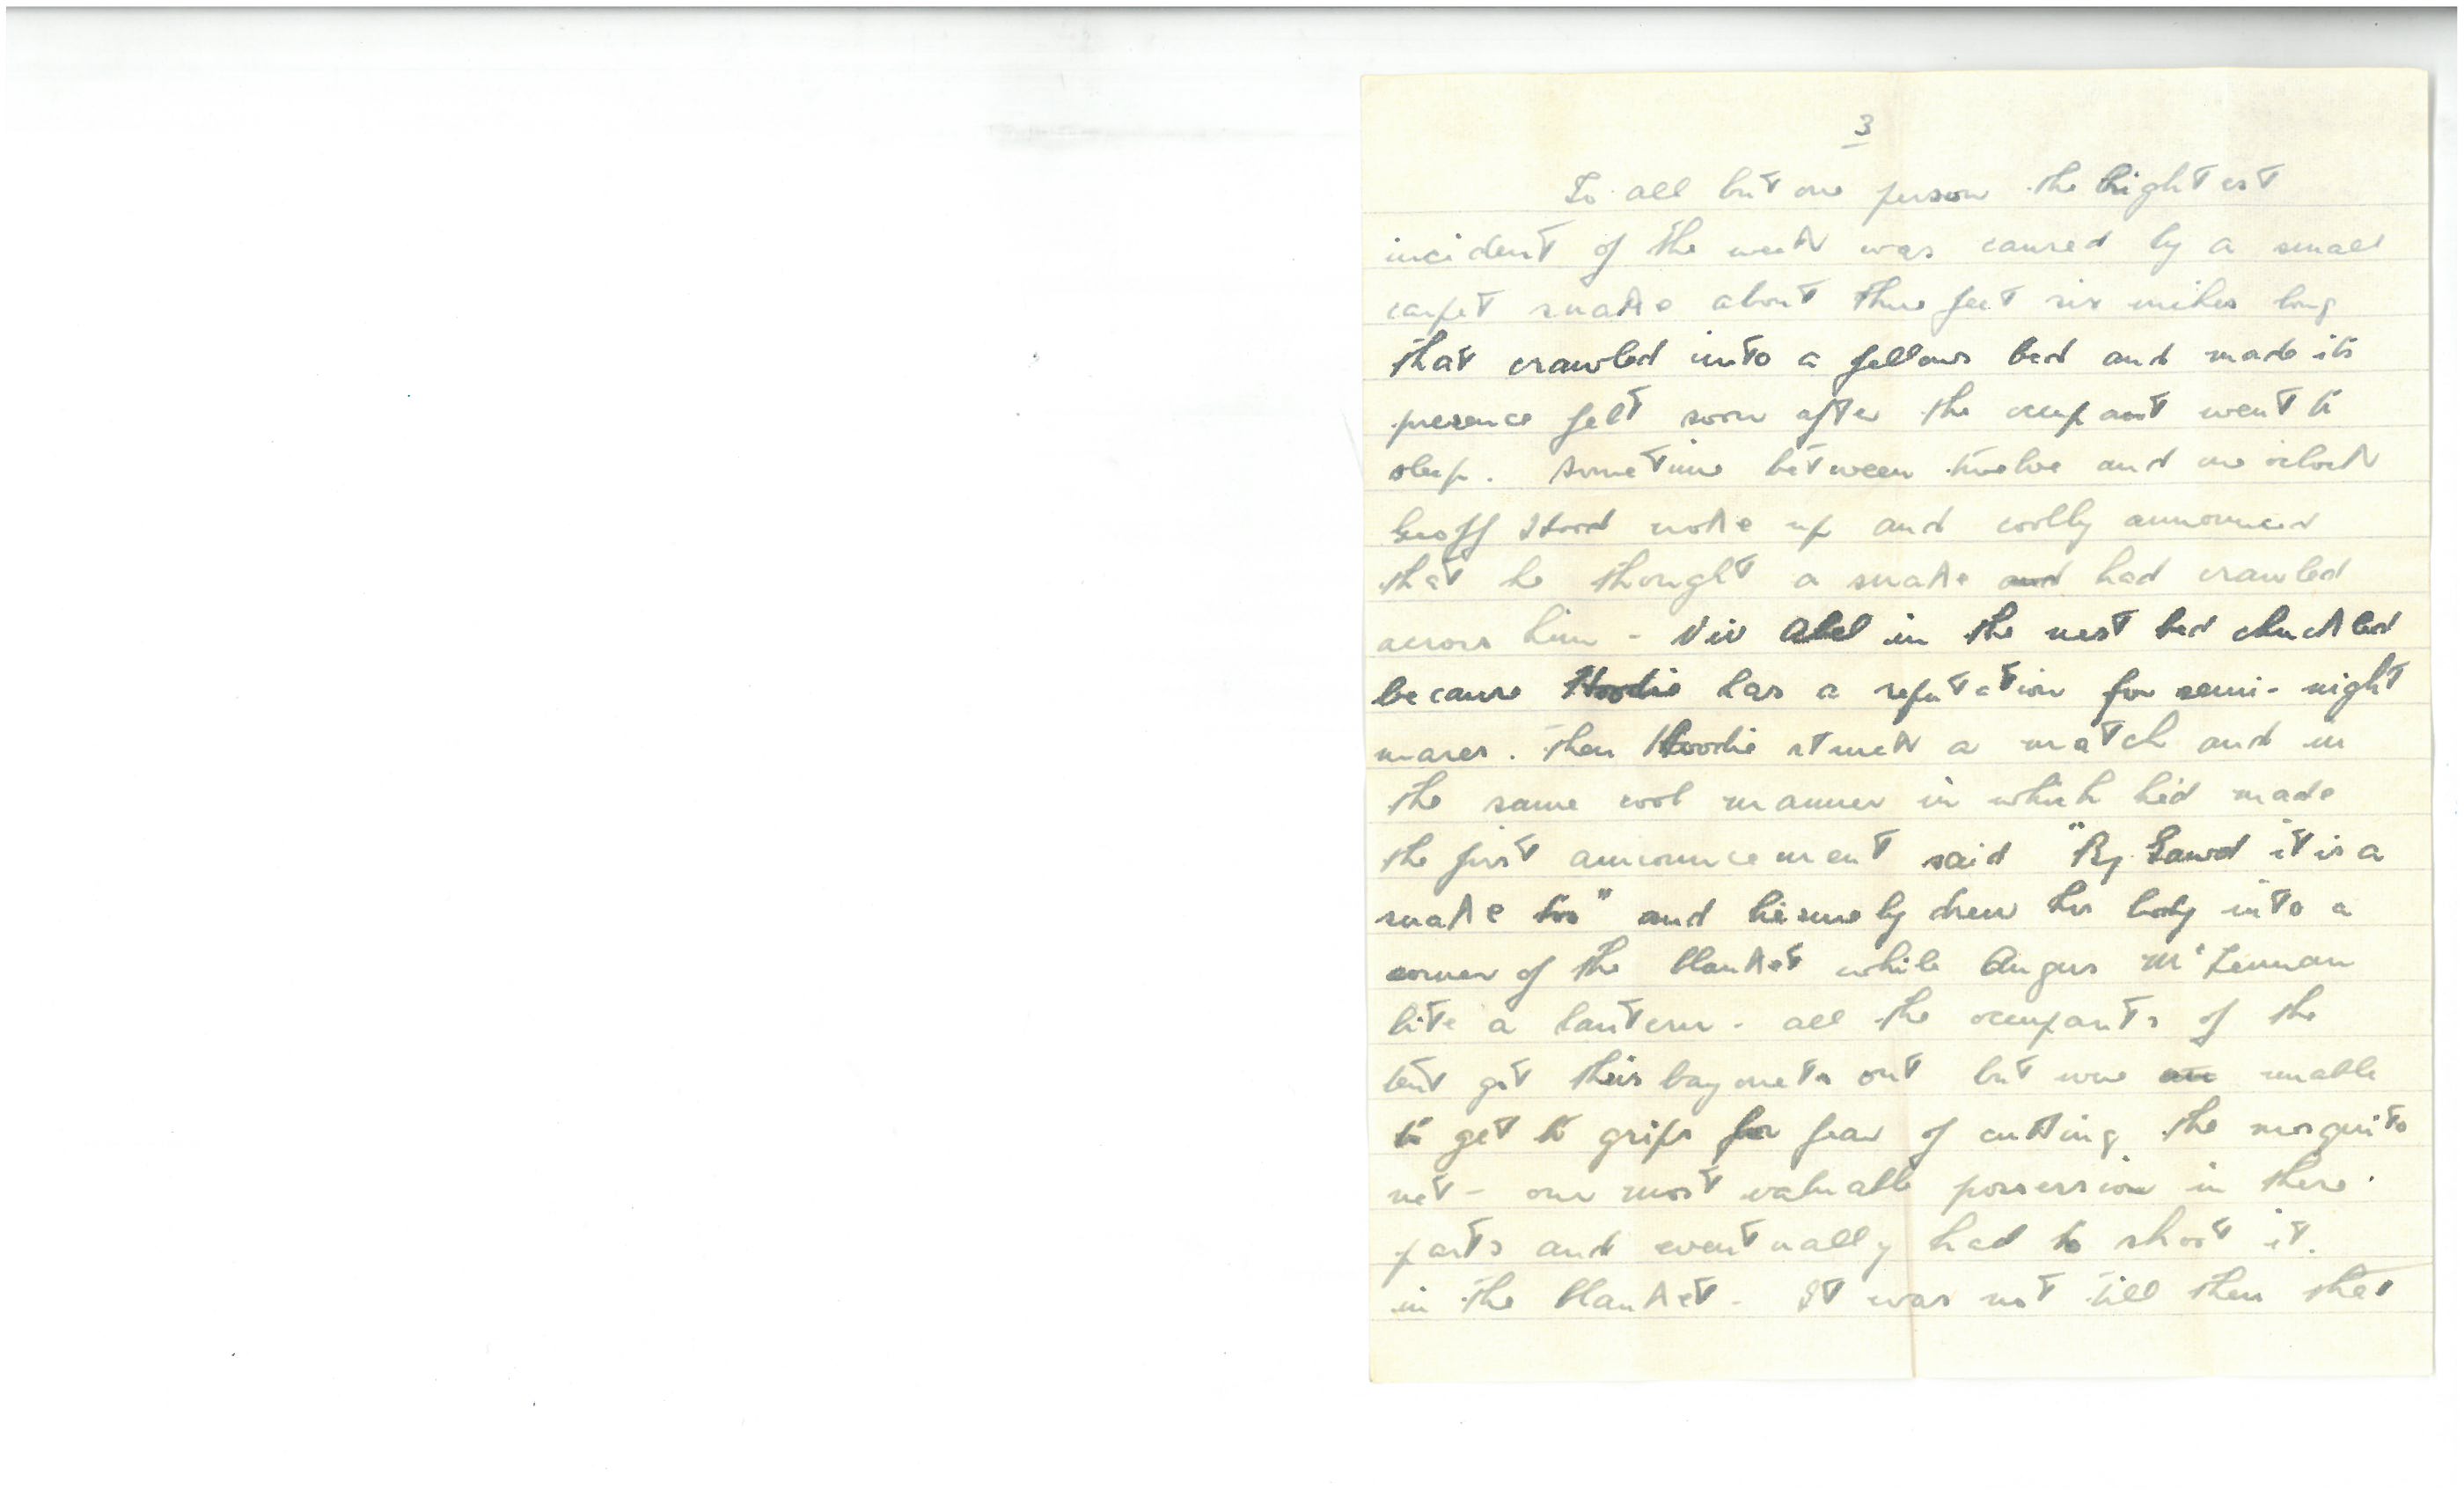 3
To all but one person the brightest
incident of the week was caused by a small
carpet snake about three feet six inches long
that crawled into a fellows bed and made its
presence felt soon after the occupant went to
sleep. Sometime between twelve and one o'clock
Geoff Hood woke up and coolly announced
that he thought a snake and had crawled
across him - Viv Abel in the next bed chuckled
because Hoodie has a reputation for semi-night
mares. Then Hoodie struck a match and in
the same cool manner in which he'd made
the first announcement said "By Gawd it is a
snake too" and leisurely drew his body into a
corner of the blanket while Angus McLennan
lite a lantern - all the occupants of the
tent got their bayonets out but were unable
to get to grips for fear of cutting the mosquito
net - our most valuable possession in these
parts and eventually had to shoot it.
in the blanket - It was not till then that